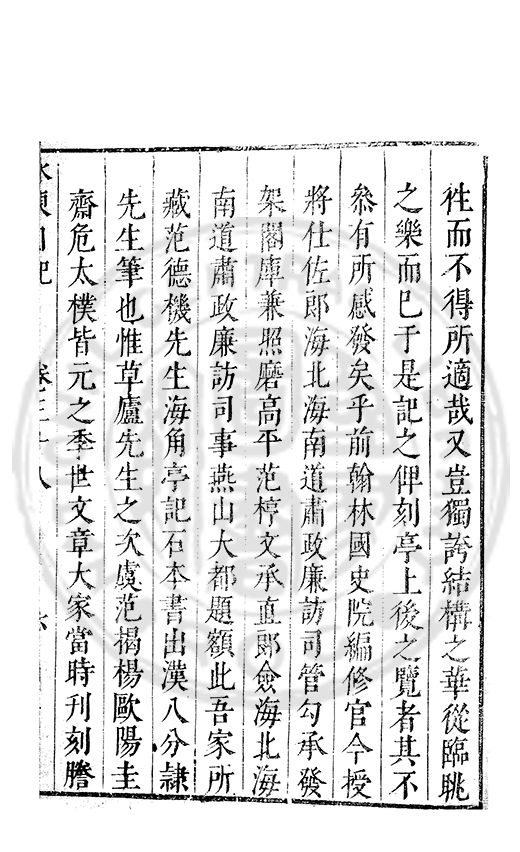 徃而不得所適哉又豈獨誇結構之華從臨眺
之樂而已于是記之俾刻亭上後之覽者其不
叅有所感發矣乎前翰林國史院編修官今授
將仕佐郎海北海南道肅政廉訪司管勾承發
架閣庫兼照磨高平范梈文承直郎僉海北海
南道肅政廉訪司事燕山大都題額此吾家所
藏范德機先生海角亭記石本書出漢八分隷
先生筆也惟草廬先生之次虞范揭楊歐陽圭
齋危太樸皆元之季世文章大家當時刊刻謄
水東日記 卷三十八 六